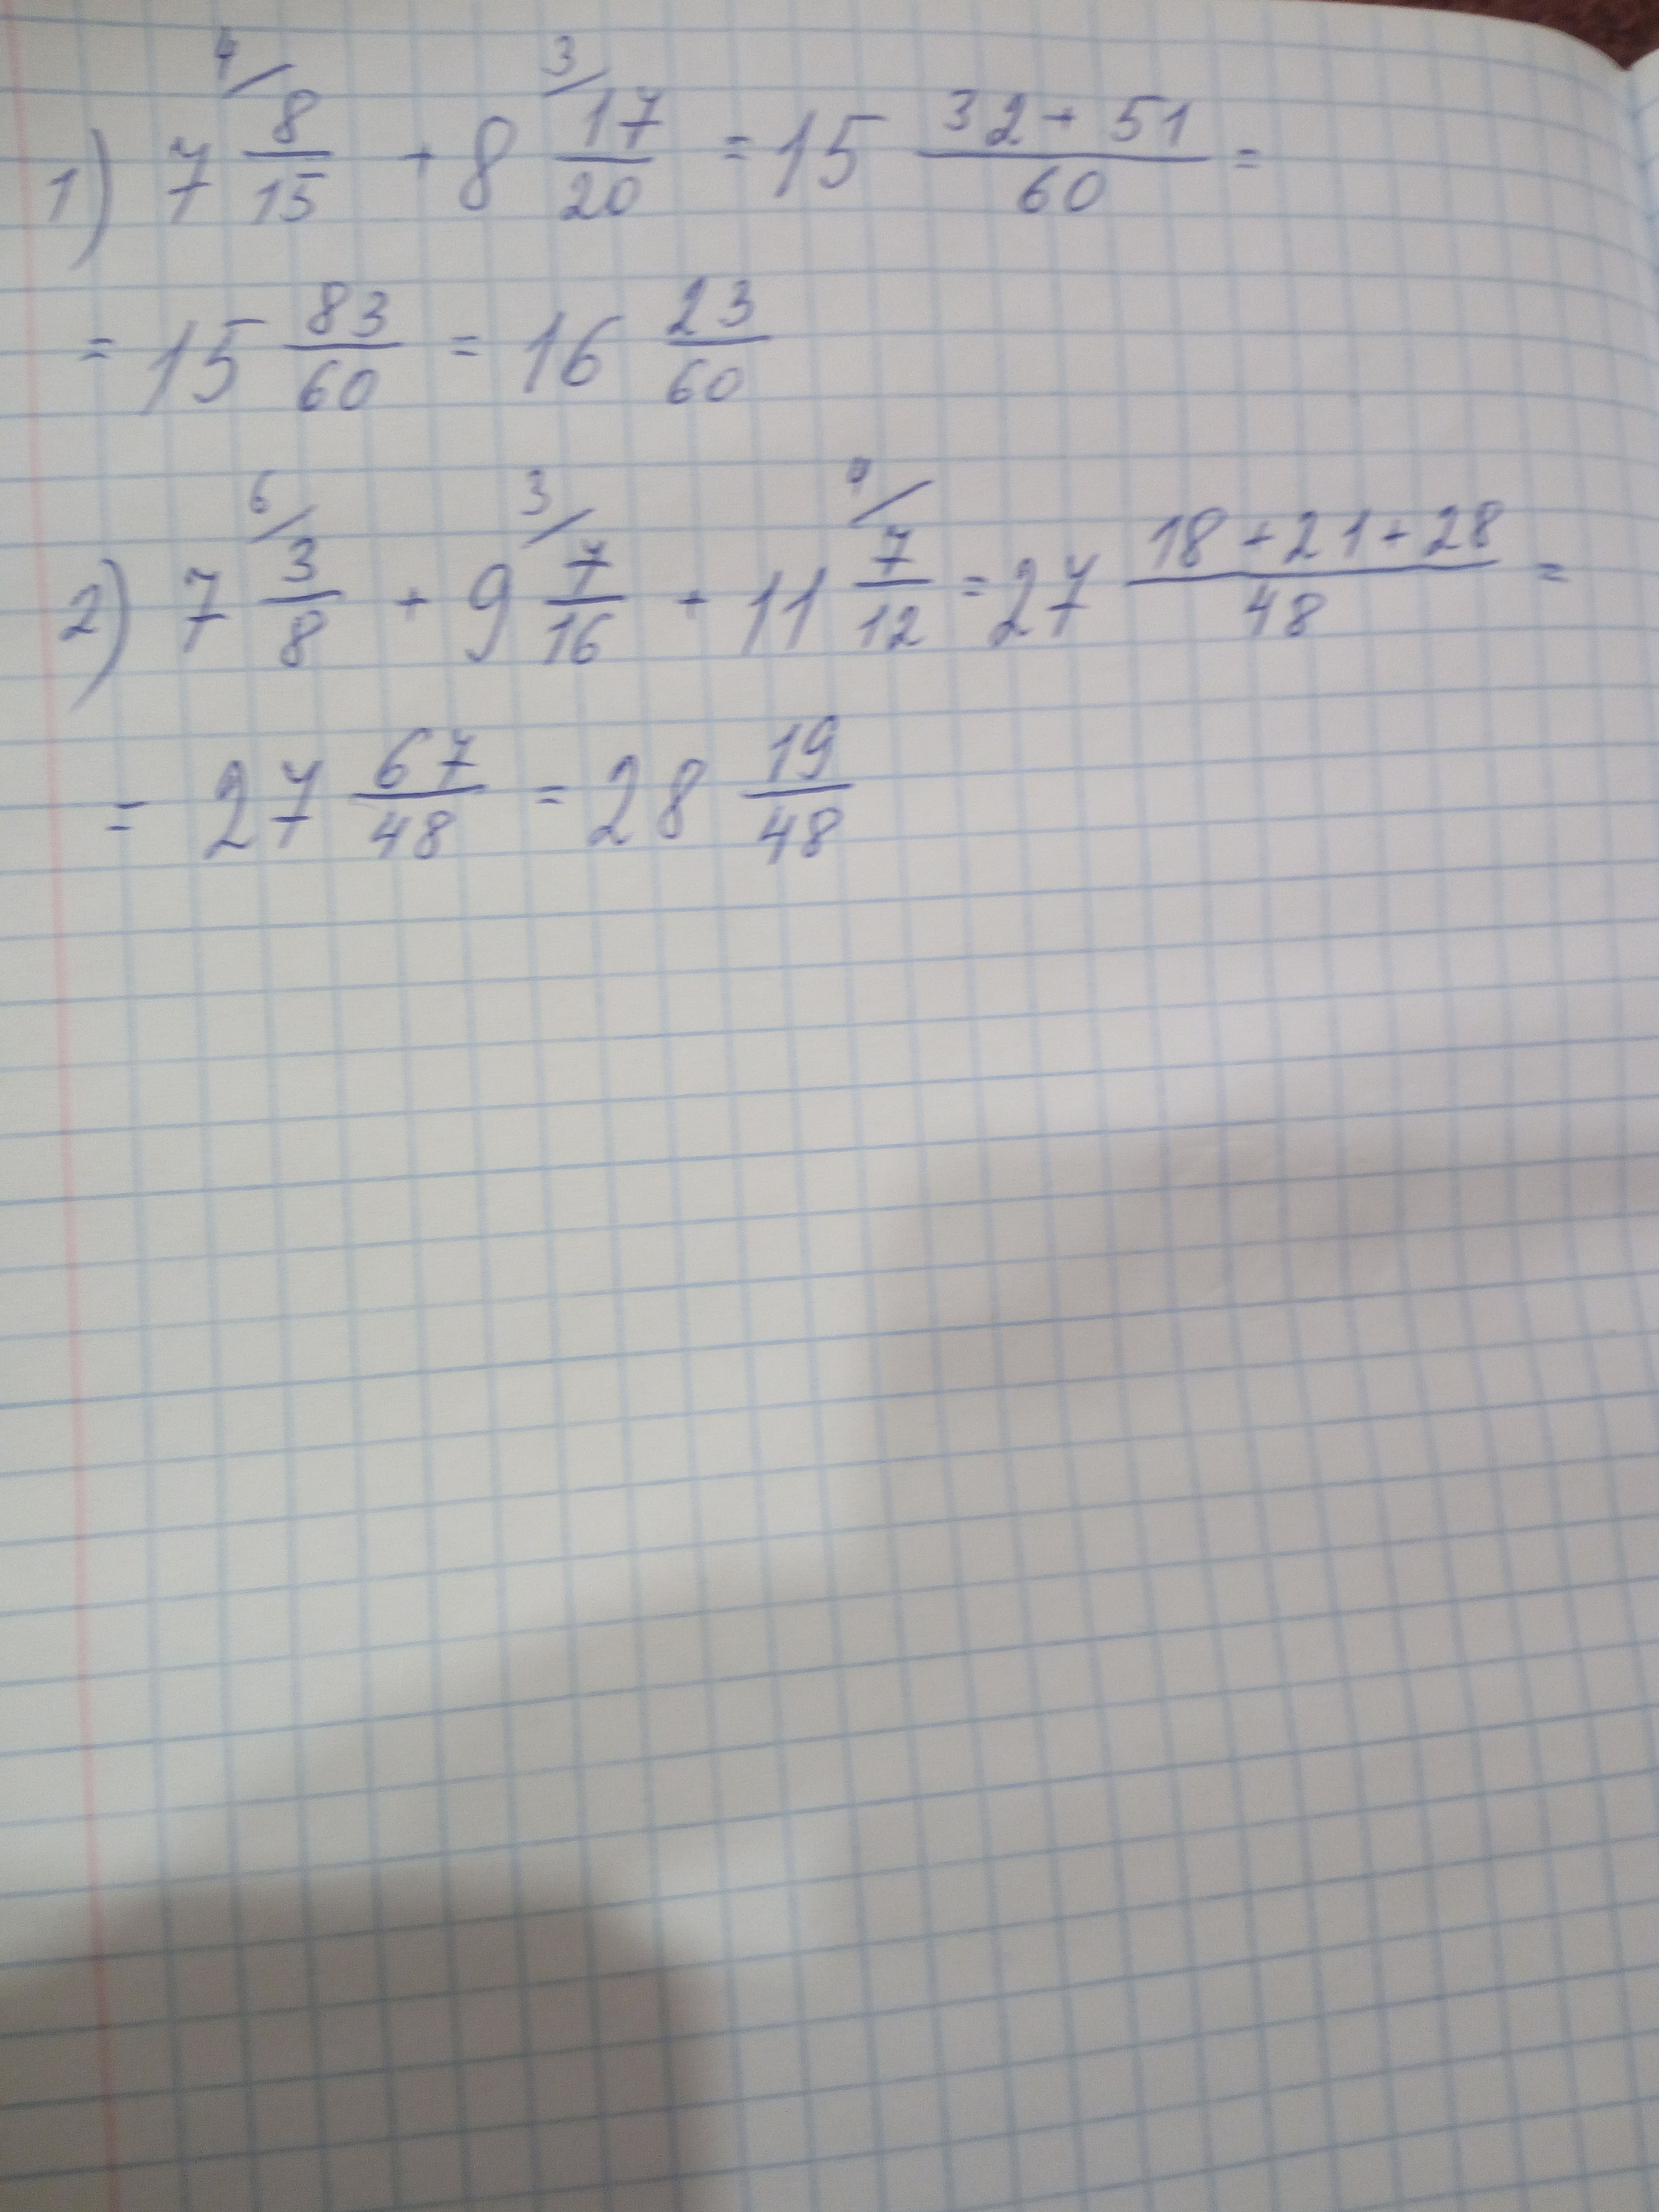 1) 7 4/ 8/15 + 8 3/ 17/20 = 15 (32 + 51)/60 =
= 15 83/60 = 16 23/60
2) 7 6/ 3/8 + 9 3/ 7/16 + 11 / 7/12 = 27 (18 + 21 + 28)/48 =
= 27 67/48 = 28 19/48